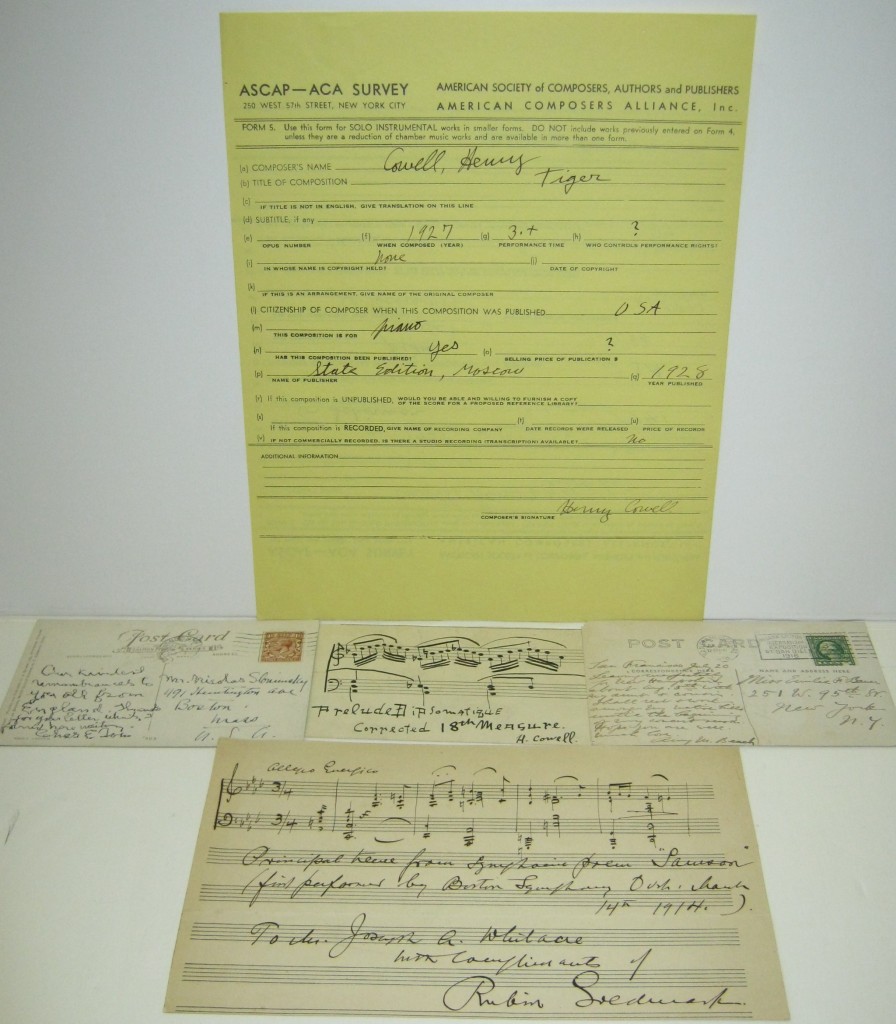 ASCAP—ACA SURVEY
250 WEST 57th STREET, NEW YORK CITY
AMERICAN SOCIETY of COMPOSERS, AUTHORS and PUBLISHERS
AMERICAN COMPOSERS ALLIANCE, Inc.
FORM 5. Use this form for SOLO INSTRUMENTAL works in smaller forms. DO NOT include works previously entered on Form 4,
unless they are a reduction of chamber music works and are available in more than one form.
(a) COMPOSER'S NAME Cowell, Henry
(b) TITLE OF COMPOSITION Tiger
(c)
IF TITLE IS NOT IN ENGLISH, GIVE TRANSLATION ON THIS LINE
(d) SUBTITLE, if any
(e) (f) 1927 (g) 3.+ (h) ?
OPUS NUMBER WHEN COMPOSED (YEAR) PERFORMANCE TIME WHO CONTROLS PERFORMANCE RIGHTS?
(i) none (j)
IN WHOSE NAME IS COPYRIGHT HELD? DATE OF COPYRIGHT
(k)
IF THIS IS AN ARRANGEMENT, GIVE NAME OF THE ORIGINAL COMPOSER
(l) CITIZENSHIP OF COMPOSER WHEN THIS COMPOSITION WAS PUBLISHED USA
(m) piano
THIS COMPOSITION IS FOR
(n) yes (o) ?
HAS THIS COMPOSITION BEEN PUBLISHED? SELLING PRICE OF PUBLICATION $
(p) State Edition, Moscow (q) 1928
NAME OF PUBLISHER YEAR PUBLISHED
(r) If this composition is UNPUBLISHED, WOULD YOU BE ABLE AND WILLING TO FURNISH A COPY
OF THE SCORE FOR A PROPOSED REFERENCE LIBRARY?
(s) (t) (u)
If this composition is RECORDED, GIVE NAME OF RECORDING COMPANY DATE RECORDS WERE RELEASED PRICE OF RECORDS
(v) IF NOT COMMERCIALLY RECORDED, IS THERE A STUDIO RECORDING (TRANSCRIPTION) AVAILABLE? No
ADDITIONAL INFORMATION
Henry Cowell
COMPOSER'S SIGNATURE
Post Card
Our kindest
remembrances to
you all from
England. Thank
for your letter
Mr. Nicolas Slonimsky
Boston
Mass
U. S. A.
Prelude
Corrected 18th Measure.
H. Cowell.
POST CARD
NAME AND ADDRESS HERE
San Francisco July 20
251 W. 95th St.
New York
N.Y.
Amy M. Beach
Allegro Energico
3/4
3/4
Principal theme from Symphonic poem "Samson"
(first performed by Boston Symphony Orch. March
14th 1914.)
To Mr. Joseph A. Whitacre
with compliments of
Rubin Goldmark